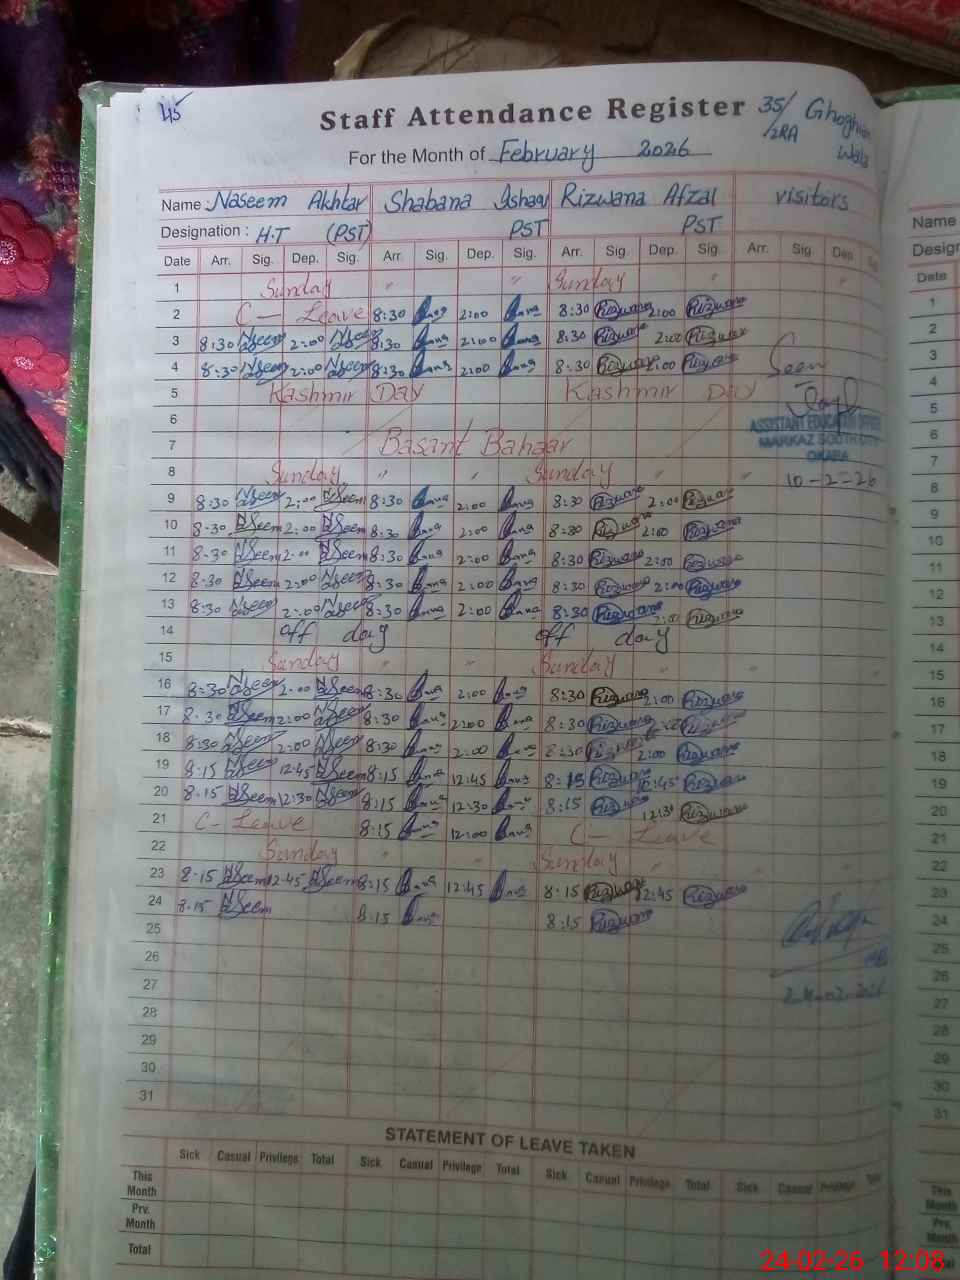 45
Staff Attendance Register 35/2RA Ghoghian Wala
For the Month of February 2026
Name : Naseem Akhtar Shabana Ishaq Rizwana Afzal visitors
Designation : H.T (PST) PST PST
Date Arr. Sig. Dep. Sig. Arr. Sig. Dep. Sig. Arr. Sig. Dep. Sig. Arr. Sig. Dep.
1 Sunday " " Sunday "
2 C- Leave 8:30 2:00 8:30 Rizwana 2:00 Rizwana
3 8:30 NSeem 2:00 NSeem 8:30 2:00 8:30 Rizwana 2:00 Rizwana
4 8:30 NSeem 2:00 NSeem 8:30 2:00 8:30 Rizwana 2:00 Rizwana Seen
5 Kashmir Day Kashmir Day
6 ASSISTANT EDUCATION OFFICER
7 Basant Bahaar MARKAZ SOUTH CITY
OKARA
8 Sunday " " Sunday " " 10-2=26
9 8:30 NSeem 2:00 NSeem 8:30 2:00 8:30 Rizwana 2:00 Rizwana
10 8:30 NSeem 2:00 NSeem 8:30 2:00 8:30 Rizwana 2:00 Rizwana
11 8:30 NSeem 2:00 NSeem 8:30 2:00 8:30 Rizwana 2:00 Rizwana
12 8:30 NSeem 2:00 NSeem 8:30 2:00 8:30 Rizwana 2:00 Rizwana
13 8:30 NSeem 2:00 NSeem 8:30 2:00 8:30 Rizwana 2:00 Rizwana
14 off day off day
15 Sunday " " Sunday " "
16 8:30 NSeem 2:00 NSeem 8:30 2:00 8:30 Rizwana 2:00 Rizwana
17 8:30 NSeem 2:00 NSeem 8:30 2:00 8:30 Rizwana Rizwana
18 8:30 NSeem 2:00 NSeem 8:30 2:00 8:30 Rizwana 2:00 Rizwana
19 8:15 NSeem 12:45 NSeem 8:15 12:45 8:15 Rizwana 12:45 Rizwana
20 8:15 NSeem 12:30 NSeem 8:15 12:30 8:15 Rizwana 12:30 Rizwana
21 C- Leave 8:15 12:00 C- Leave
22 Sunday " " Sunday " "
23 8:15 NSeem 12:45 NSeem 8:15 12:45 8:15 Rizwana 12:45 Rizwana
24 8:15 NSeem 8:15 8:15 Rizwana
25
26
27 24-02-2026
28
29
30
31
STATEMENT OF LEAVE TAKEN
Sick Casual Privilege Total Sick Casual Privilege Total Sick Casual Privilege Total Sick Casual Privilege Total
This Month
Prv. Month
Total
Name
Date
1
2
3
4
5
6
7
8
9
10
11
12
13
14
15
16
17
18
19
20
21
22
23
24
25
26
27
28
29
30
31
This Month
Prv.
24-02-26 12:08